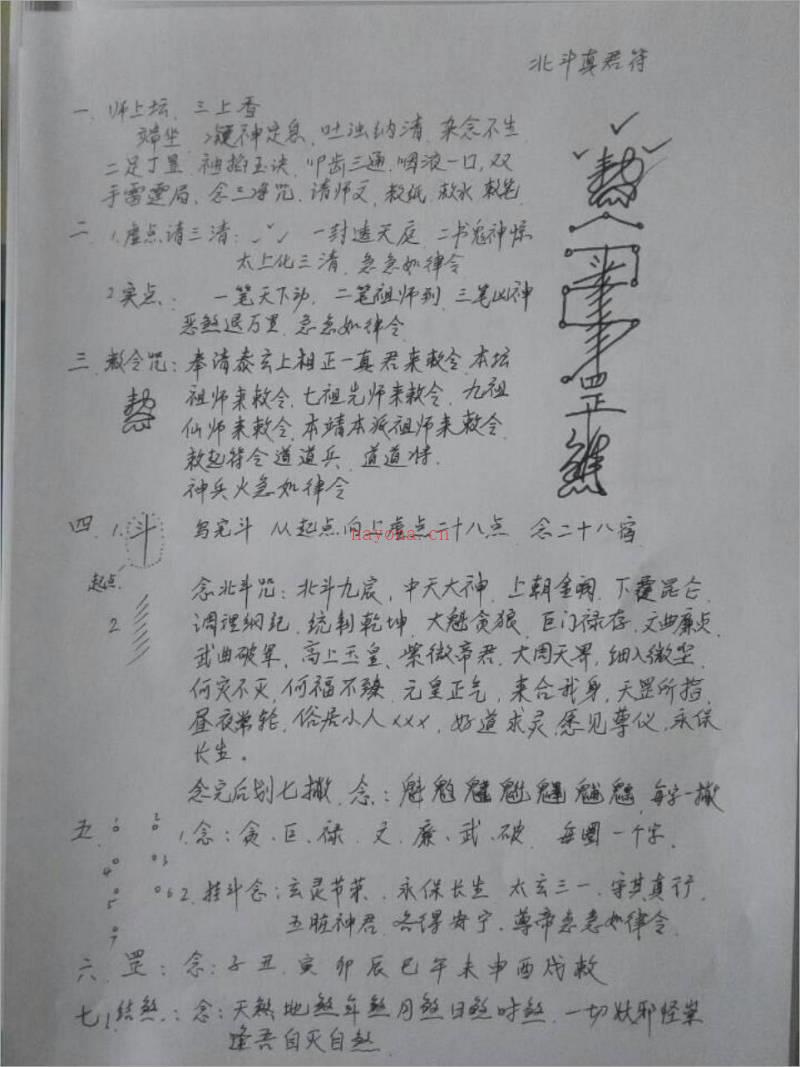 北斗真君符
一、师上坛、三上香
端坐 凝神定息、吐浊纳清 杂念不生
二足丁罡、 掐玉诀、叩齿三通、咽液一口、双
手雷霆局、念三净咒、请师文、敕纸 敕水 敕笔
二 1.虚点请三清： 一封速天庭 二书鬼神惊
太上化三清 急急如律令
2.实点： 一笔天下动、二笔祖师到 三笔凶神
恶煞退万里 急急如律令
三、敕令咒：奉请泰玄上相正一真君来敕令、本坛
祖师来敕令、七祖先师来敕令、九祖
仙师来敕令、本靖本派祖师来敕令
敕起符令道道兵、道道将
神兵火急如律令
四 1. 斗 写完斗 从起点向上虚点二十八点 念二十八宿
nayona.cn
起点
念北斗咒：北斗九宸，中天大神，上朝金阙，下覆昆仑
2 调理纲纪，统制乾坤，大魁贪狼，巨门禄存，文曲廉贞
武曲破军，高上玉皇，紫微帝君，大周天界，细入微尘
何灾不灭，何福不臻，元皇正气，来合我身，天罡所指，
昼夜常轮，俗居小人xxx，好道求灵，愿见尊仪，永保
长生。
念完后划七撇、念： 每字一撇
五 1.念：贪、巨、禄、文、廉、武、破 每圈一个字。
2.挂斗念：玄灵节荣、永保长生 太玄三一、守其真行
五脏神君、各得安宁、尊帝急急如律令
六 罡：念：子丑、寅卯辰巳午未申酉戌敕
七 1.结煞：念：天煞地煞年煞月煞日煞时煞、一切妖邪怪祟
逢吾自灭自煞